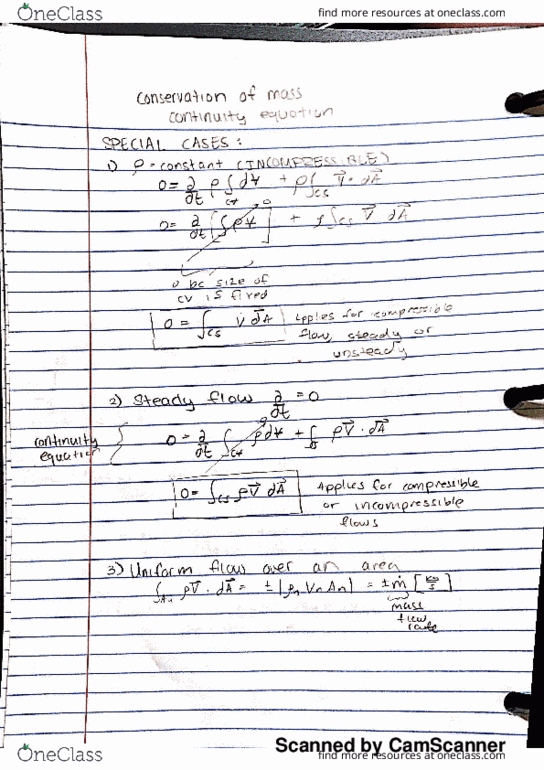 OneClass
find more resources at oneclass.com
Conservation of mass
continuity equation
SPECIAL CASES:
1) ρ = constant (INCOMPRESSIBLE)
0 = ∂/∂t ρ ∫cv dV + ρ∫cs V⃗ · dA⃗
0 = ∂/∂t [∫ρV] + ρ∫cs V⃗ dA⃗
0
0 bc size of
CV is fixed
0 = ∫cs V⃗ dA⃗
Applies for
flow, steady or
unsteady
2) Steady flow ∂/∂t = 0
continuity
equation
0 = ∂/∂t ∫cv ρdV + ∫cs ρV⃗ · dA⃗
0
0 = ∫cs ρV⃗ dA⃗
Applies for compressible
or incompressible
flows
3) Uniform flow over an area
∫An ρV⃗ · dA⃗ = ± |ρn Vn An| = ± ṁ [kg/s]
mass
flow
rate
Scanned by CamScanner
OneClass
find more resources at oneclass.com